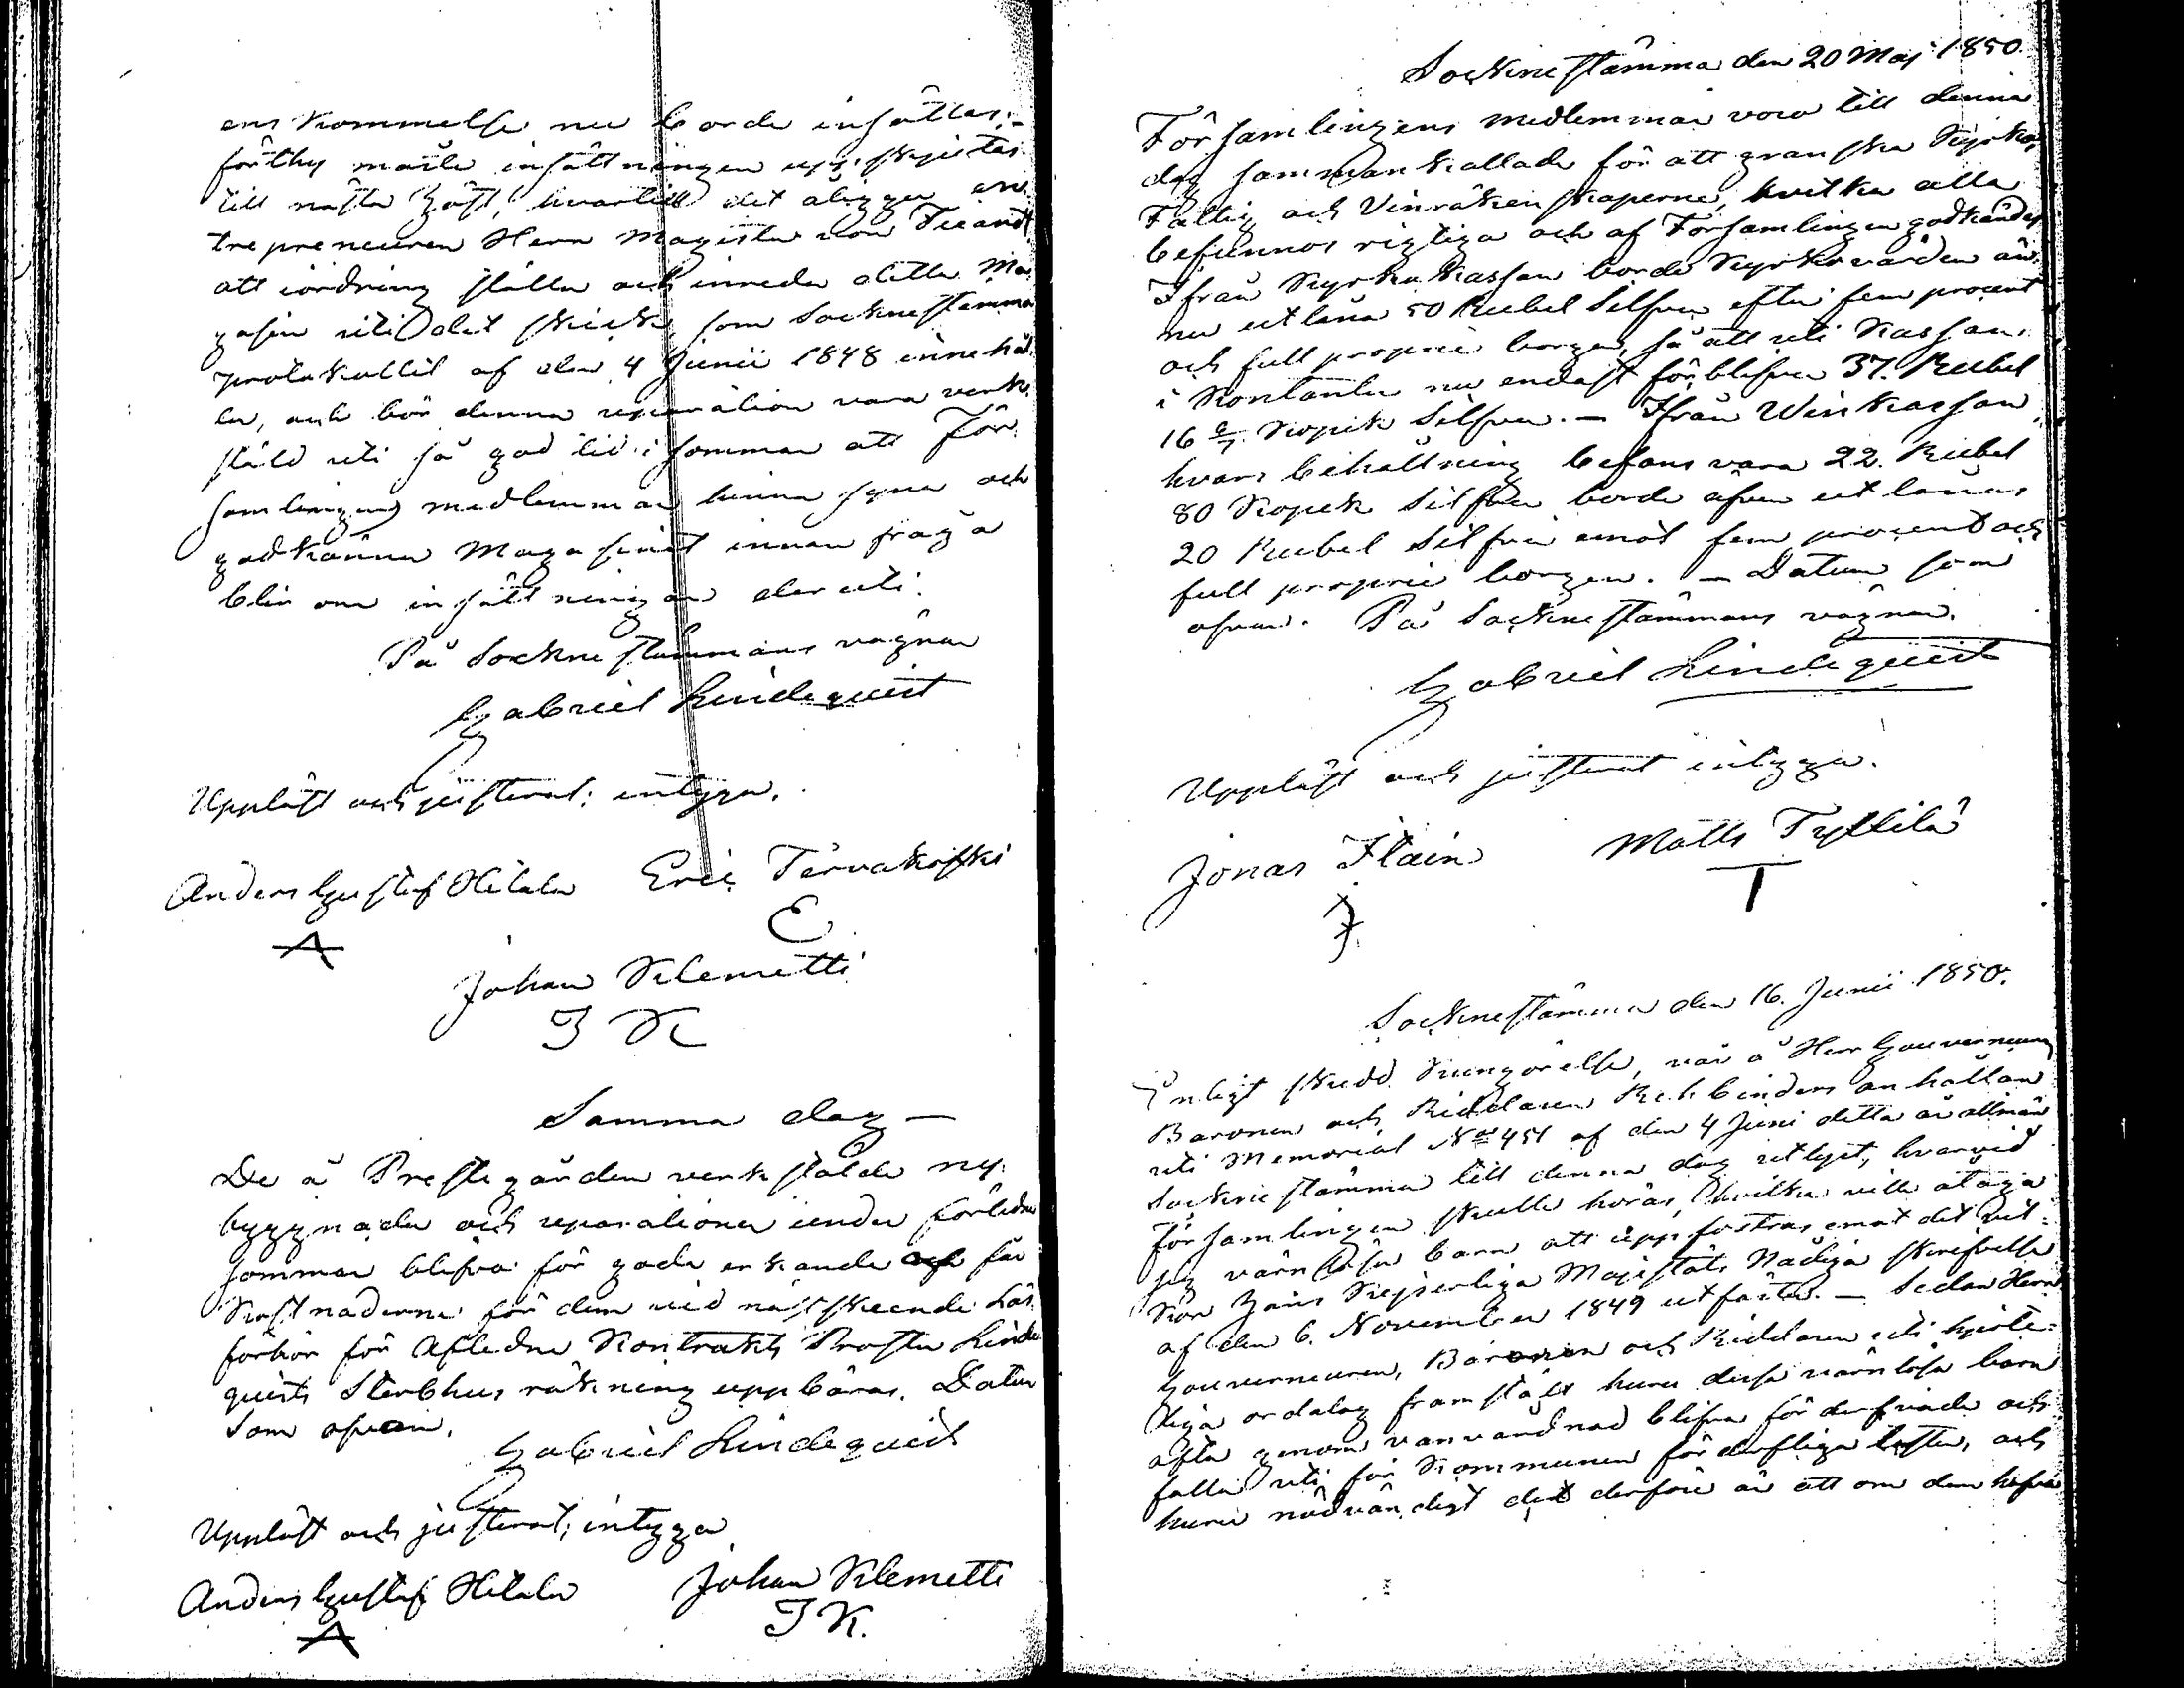 ens kommelse nu borde insättas;-
förthy måste insättningen uppskjutas
till nästa höst, hvartill det åligger en-
trepreneuren Herr Magister von Fieandt
att iordning ställa och inreda detta Ma-
gasin uti det skick som Sockne stämma
protokollet af den 4 Junii 1848 innehål-
ler, och bör denna reparation vara verk-
stäld uti så god tid i sommar att För-
samlingens medlemmar hinna syna och
godkänna Magasinet innan fråga
blir om insättningen deruti.
På Sockne stämmans vägnar
Gabriel Lindequist
Uppläst och justerat; intyga.
Anders Gustaf Hétala Eric Tervakoski
A E
Johan Klemetti
J K
Samma dag —
De å Prestegården verkstälde ny-
byggnader och reparationer under förledne
sommar blefvo för goda erkände och få
Kostnaderne för dem vid nästskeende Läs-
förhör för Afledne Kontrakts Prosten Linde
quists Sterbhus räkning uppbäras. Datum
Som ofvan.
Gabriel Lindequist
Uppläst och justerat; intyga
Anders Gustaf Hétala Johan Klemetti
A J K.
Sockne stämma den 20 Maj 1850.
Församlingens medlemmar voro till denna
dag sammankallade för att granska Kyrko,
Fattig och Vinräkenskaperne, hvilka alla
befunnos rigtiga och af Församlingen godkändes
Ifrån Kyrko kassan borde Kyrkovärden än-
nu utlåna 50 Rubel Silfver efter fem procent
och full proprie borgen, så att uti Kassan
i Kontanter nu endast förblifver 37. Rubel
16 2/7 Kopek Silfver. — Ifrån Winkassan
hvars behållning befans vara 22. Rubel
80 Kopek Silfver borde äfven utlånas
20 Rubel Silfver emot fem procent och
full proprie borgen. — Datum som
ofvan. På Socknestämmans vägnar.
Gabriel Lindequist
Uppläst och justerat intyga.
Jonas Flain Matts Tyllilä
J T
Socknestämma den 16. Junii 1850.
Enligt skedd Kungörelse, var å Herr Gouverneuren
Baronen och Riddaren Rehbinders anhållan
uti Memorial No 451 af den 4 Juni detta år allmän
Sockne stämma till denna dag utlyst, hvarvid
Församlingen skulle höras, hvilka ville åtaga
sig värnlösa barn att uppfostras emot det vil-
kor Hans Kejserliga Majestäts Nådiga skrifvelse
af den 6. November 1849 utfäster. — Sedan Herr
Gouverneuren, Baronen och Riddaren uti hjerte-
liga ordalag framstält huru dessa värnlösa barn
ofta genom vanvårdnad blifva förderfvade och
falla uti för Kommunen förderfliga laster, och
huru nödvändigt det derföre är att om dem hafva